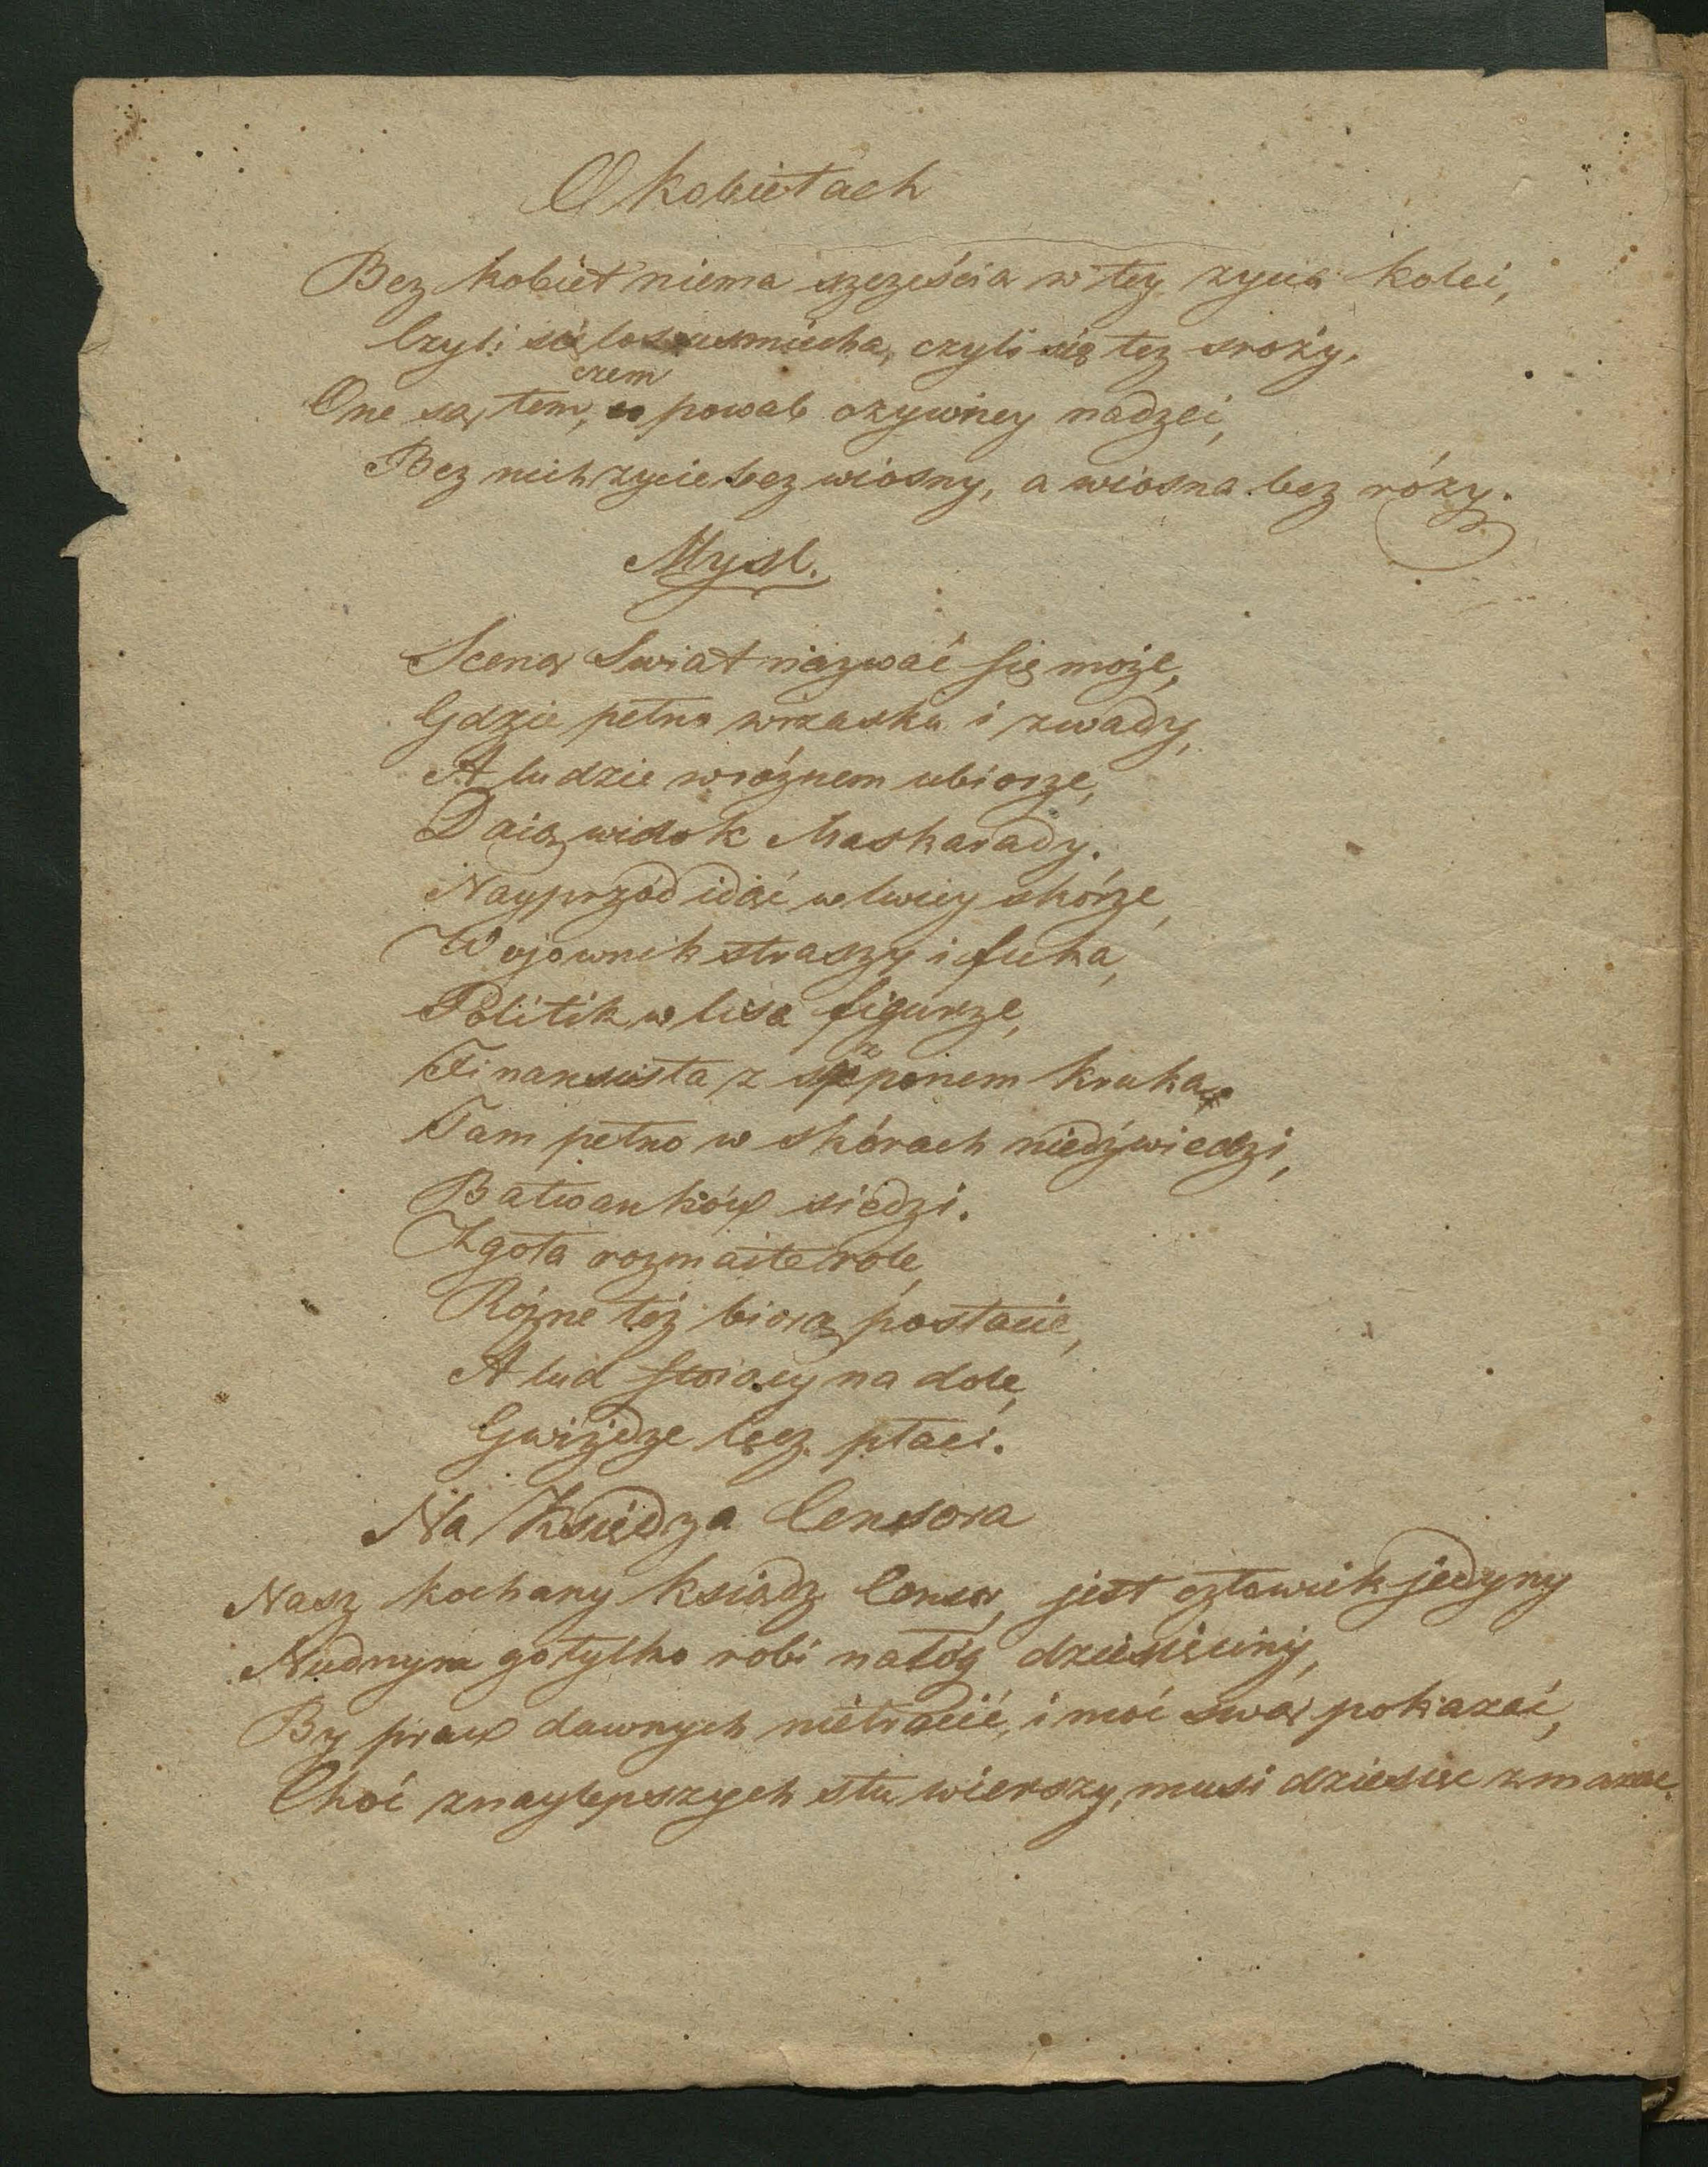 O kobietach
Bez kobiet niema szczęścia w tey zycia kolei,
Czyli się los usmiecha, czyli się tez srozy.
czem
One są tem, co powab ozywney nadzei,
Bez nich zycie bez wiosny, a wiosna bez róży.
Mysl.
Sceną Swiat nazwać się może,
Gdzie pełno wrzasku i zwady,
A ludzie w róznem ubiorze,
Daią widok Maskarady.
Nayprzód idąć w lwiey skórze,
Wojownik straszy i fuka,
Politik w lisa figurze,
Finansista z szponem kruka.
Tam pełno w skórach niedźwiedzi,
Bałwanków siedzi.
Zgoła rozmaite role,
Rózne też biorą postacie,
A lud stoiący na dole,
Gwiżdze lecz płaci.
Na Księdza Censora
Nasz kochany ksiądz Censor, jest człowiek jedyny
Nudnym go tylko robi nałóg dziesięciny,
By praw dawnych nietracić, i moć swą pokazać,
Choć znaylepszych stu wierszy, musi dziesięc zmazac.